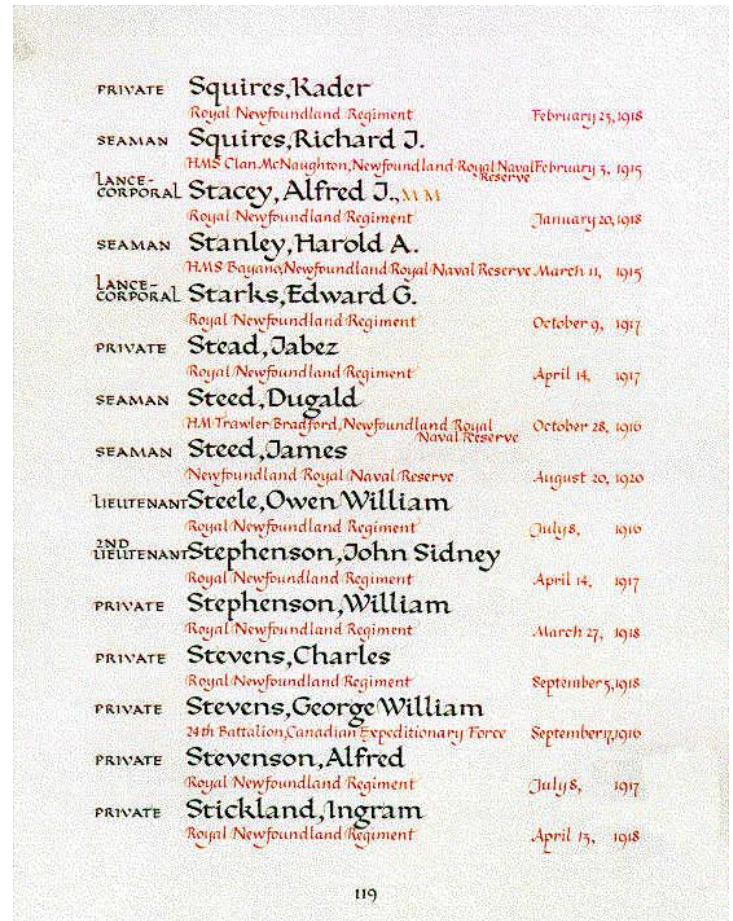 PRIVATE Squires, Kader
Royal Newfoundland Regiment February 25, 1918
SEAMAN Squires, Richard J.
HMS Clan McNaughton, Newfoundland Royal Naval Reserve February 3, 1915
LANCE-CORPORAL Stacey, Alfred J., MM
Royal Newfoundland Regiment January 20, 1918
SEAMAN Stanley, Harold A.
HMS Bayano, Newfoundland Royal Naval Reserve March 11, 1915
LANCE-CORPORAL Starks, Edward G.
Royal Newfoundland Regiment October 9, 1917
PRIVATE Stead, Jabez
Royal Newfoundland Regiment April 14, 1917
SEAMAN Steed, Dugald
HM Trawler Bradford, Newfoundland Royal Naval Reserve October 28, 1916
SEAMAN Steed, James
Newfoundland Royal Naval Reserve August 20, 1920
LIEUTENANT Steele, Owen William
Royal Newfoundland Regiment July 8, 1916
2ND LIEUTENANT Stephenson, John Sidney
Royal Newfoundland Regiment April 14, 1917
PRIVATE Stephenson, William
Royal Newfoundland Regiment March 27, 1918
PRIVATE Stevens, Charles
Royal Newfoundland Regiment September 5, 1918
PRIVATE Stevens, George William
24th Battalion, Canadian Expeditionary Force September 17, 1916
PRIVATE Stevenson, Alfred
Royal Newfoundland Regiment July 8, 1917
PRIVATE Stickland, Ingram
Royal Newfoundland Regiment April 13, 1918
119